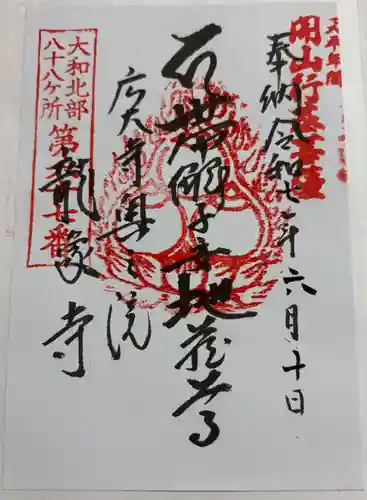 天平年間
開山行基菩薩
奉納令和七年六月十日
帯解子安地蔵尊
広大寺奥之院
龍象寺
大和北部
八十八ケ所
第五十七番